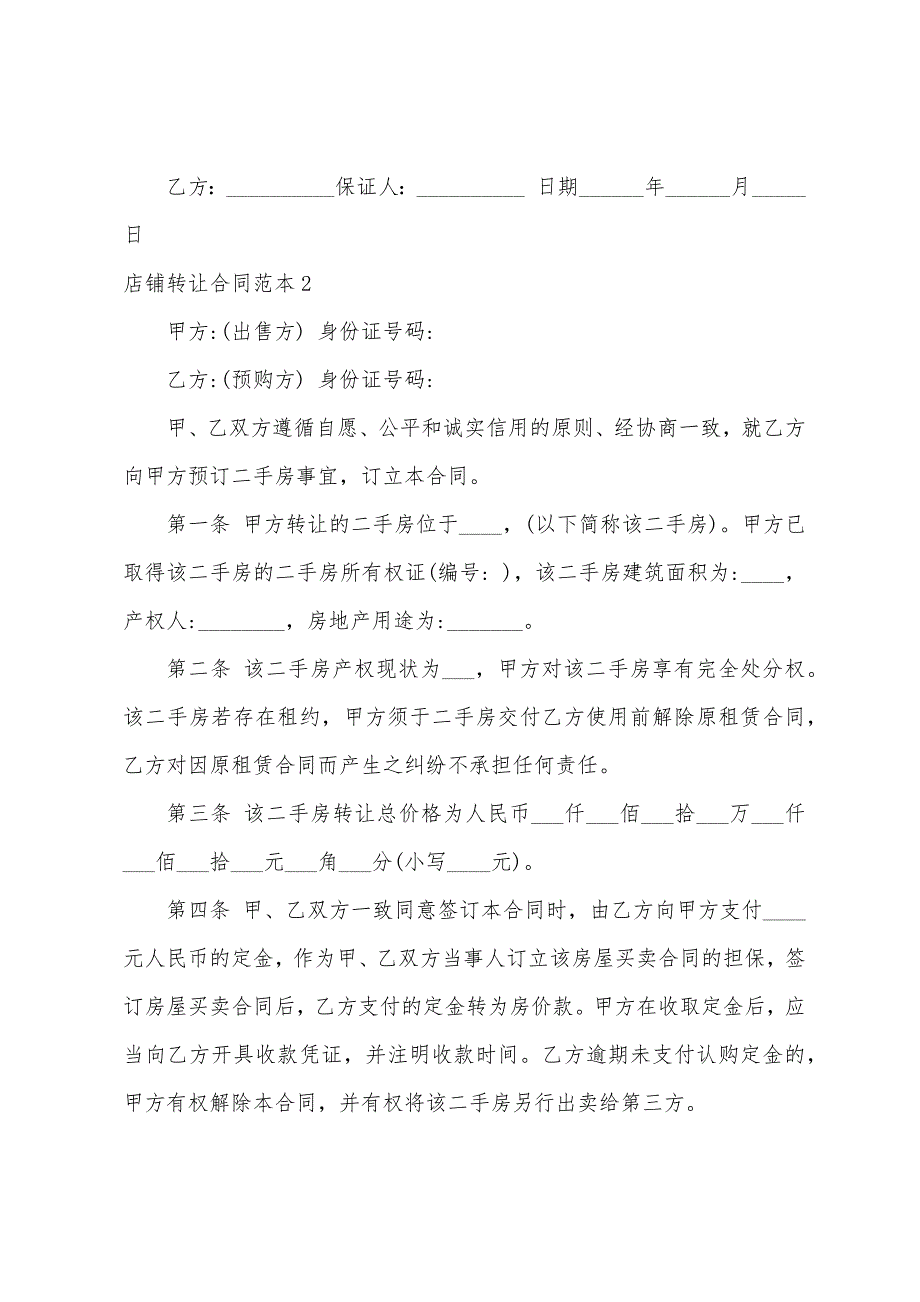 乙方：__________保证人：__________ 日期______年______月_____
日
店铺转让合同范本2
甲方:(出售方) 身份证号码:
乙方:(预购方) 身份证号码:
甲、乙双方遵循自愿、公平和诚实信用的原则、经协商一致，就乙方
向甲方预订二手房事宜，订立本合同。
第一条 甲方转让的二手房位于____，(以下简称该二手房)。甲方已
取得该二手房的二手房所有权证(编号: )，该二手房建筑面积为:____，
产权人:________，房地产用途为:_______。
第二条 该二手房产权现状为___，甲方对该二手房享有完全处分权。
该二手房若存在租约，甲方须于二手房交付乙方使用前解除原租赁合同，
乙方对因原租赁合同而产生之纠纷不承担任何责任。
第三条 该二手房转让总价格为人民币___仟___佰___拾___万___仟
___佰___拾___元___角___分(小写____元)。
第四条 甲、乙双方一致同意签订本合同时，由乙方向甲方支付____
元人民币的定金，作为甲、乙双方当事人订立该房屋买卖合同的担保，签
订房屋买卖合同后，乙方支付的定金转为房价款。甲方在收取定金后，应
当向乙方开具收款凭证，并注明收款时间。乙方逾期未支付认购定金的，
甲方有权解除本合同，并有权将该二手房另行出卖给第三方。